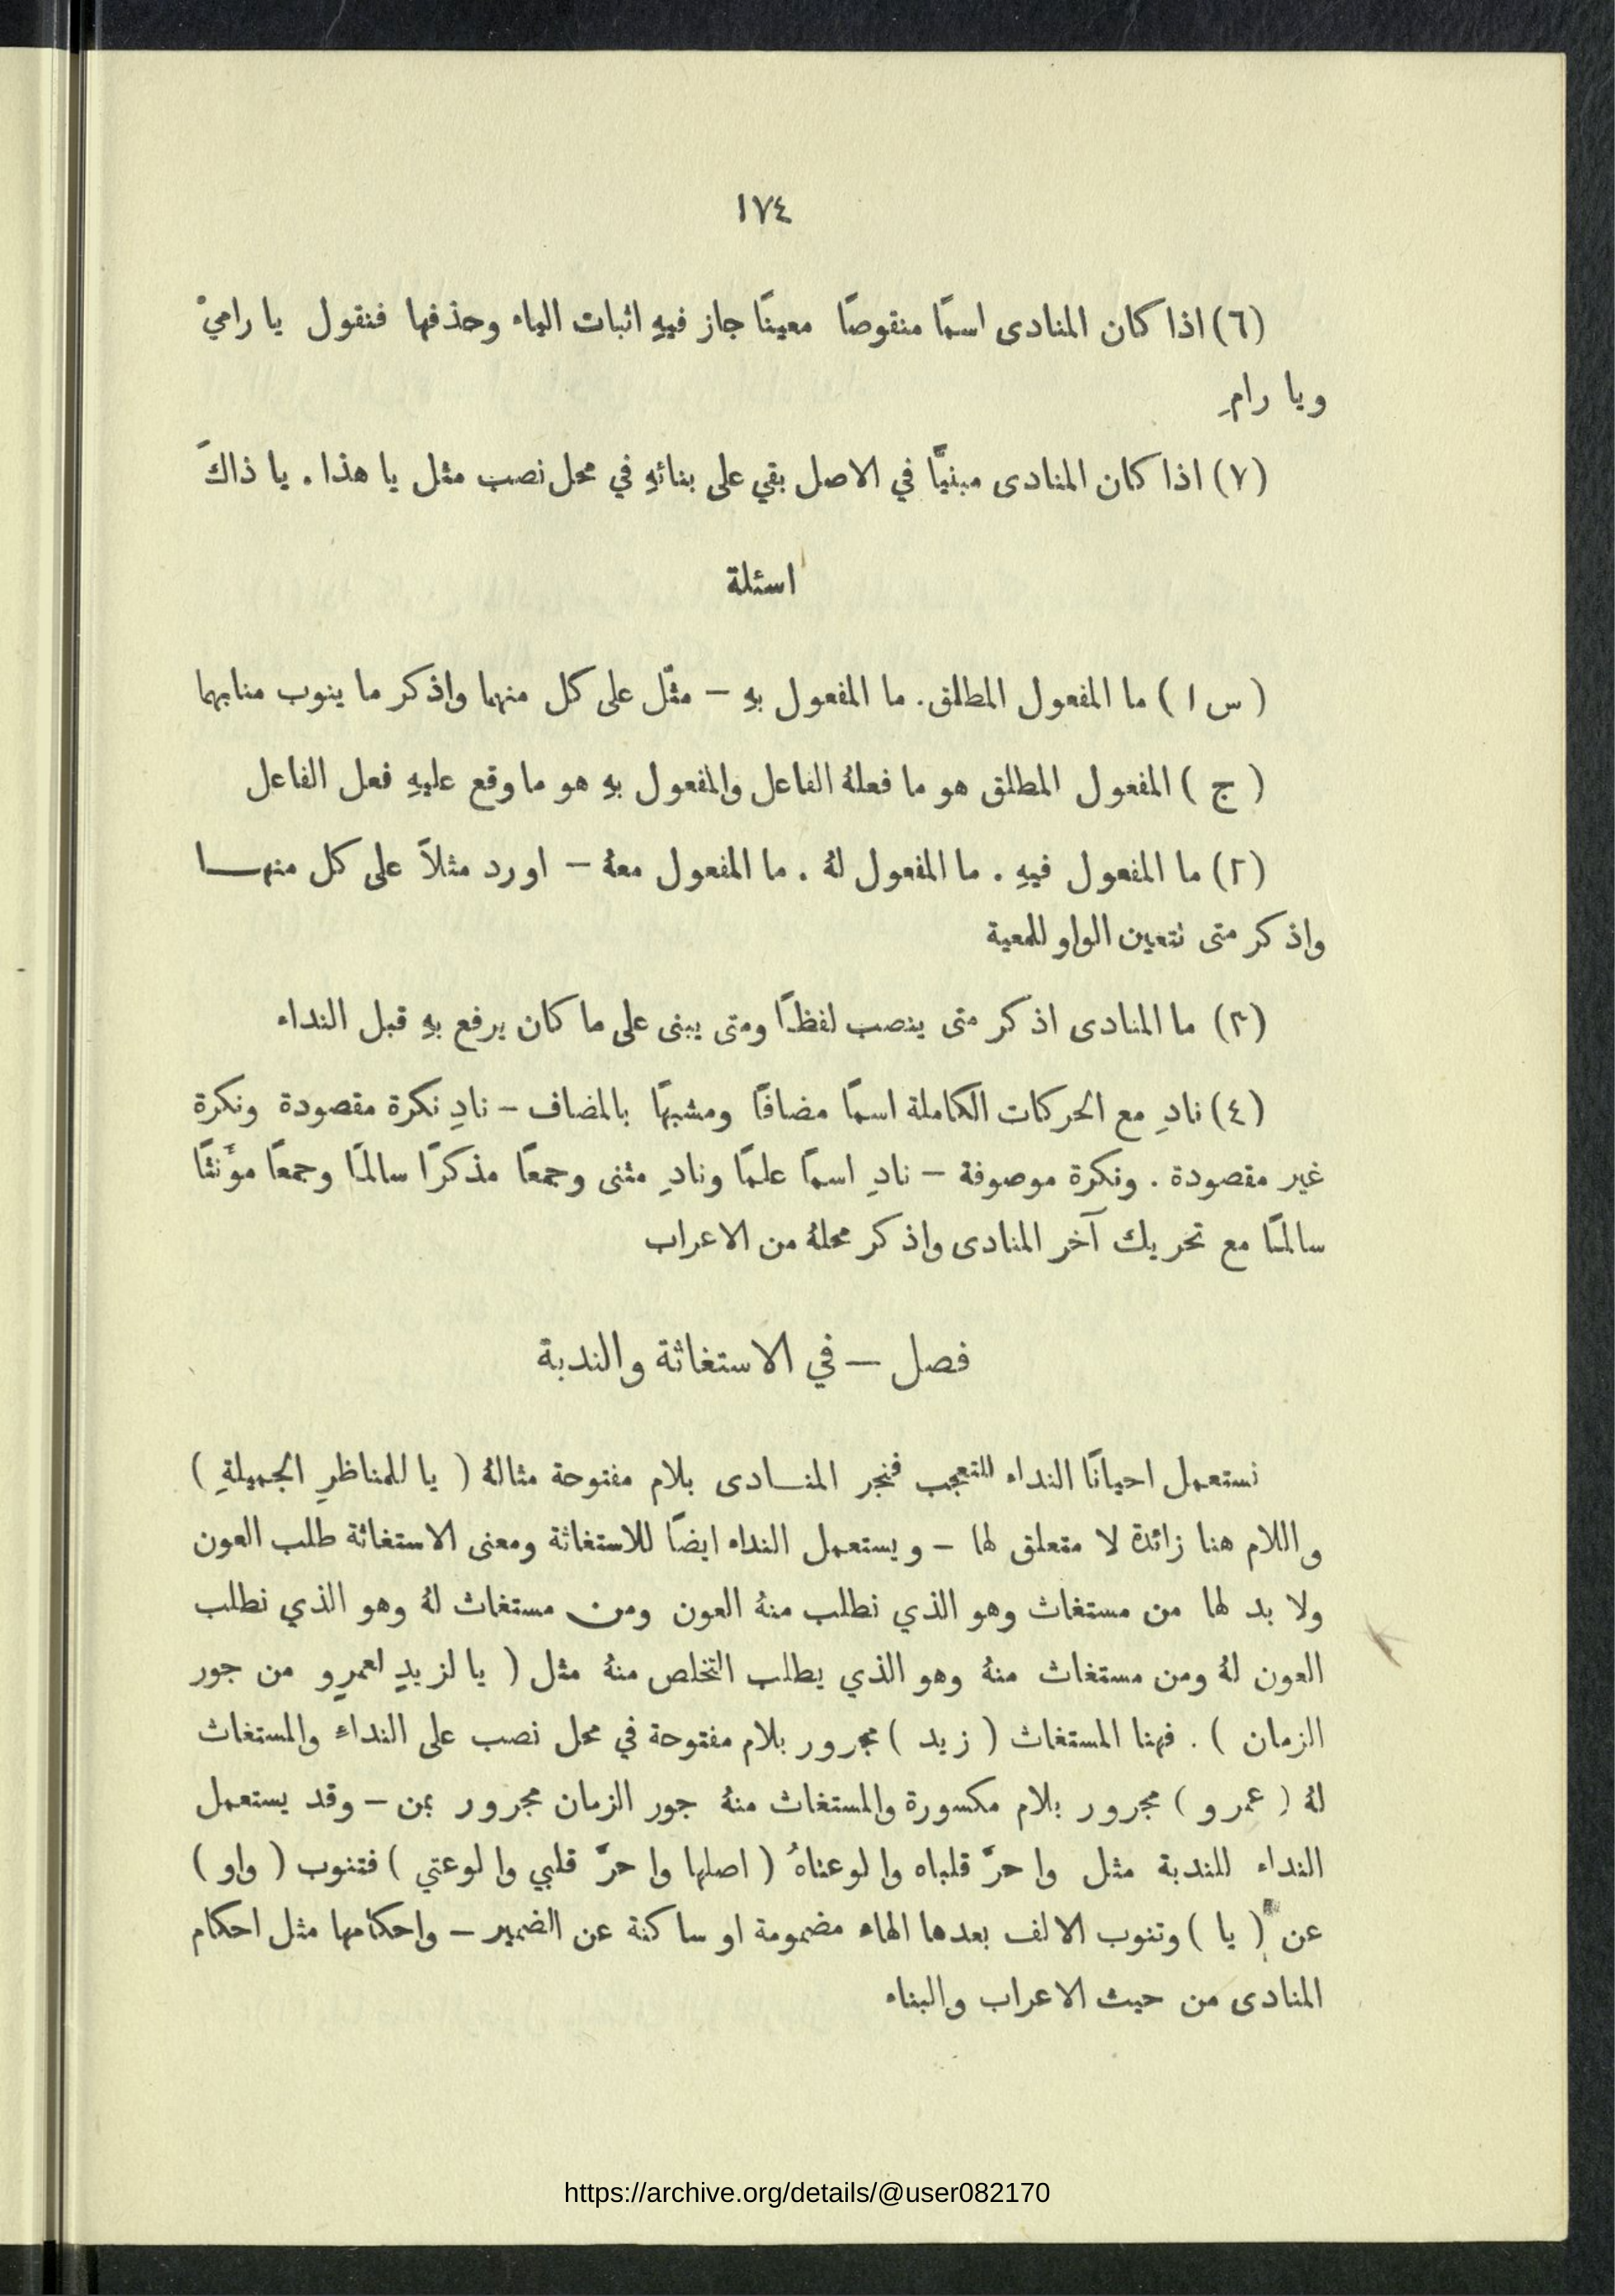 ١٧٤
(٦) اذا كان المنادى اسمًا منقوصًا معينًا جاز فيهِ اثبات الياء وحذفها فنقول يا راميْ
ويا رامِ
(٧) اذا كان المنادى مبنيًّا في الاصل بقي على بنائهِ في محل نصب مثل يا هذا . يا ذاكَ
اسئلة
( س ١ ) ما المفعول المطلق . ما المفعول بهِ – مثّل على كل منهما واذكر ما ينوب منابهما
( ج ) المفعول المطلق هو ما فعلهُ الفاعل والمفعول بهِ هو ما وقع عليهِ فعل الفاعل
(٢) ما المفعول فيهِ . ما المفعول لهُ . ما المفعول معهُ – اورد مثلاً على كل منهـا
واذكر متى نتعين الواو للمعية
(٣) ما المنادى اذكر متى ينصب لفظًا ومتى يبنى على ما كان يرفع بهِ قبل النداء
(٤) نادِ مع الحركات الكاملة اسمًا مضافًا ومشبهًا بالمضاف – نادِ نكرة مقصودة ونكرة
غير مقصودة . ونكرة موصوفة – نادِ اسمًا علمًا ونادِ مثنى وجمعًا مذكرًا سالمًا وجمعًا مؤنثًا
سالمًا مع تحريك آخر المنادى واذكر محلهُ من الاعراب
فصل – في الاستغاثة والندبة
نستعمل احيانًا النداء للتعجب فنجر المنـادى بلام مفتوحة مثالهُ ( يا للمناظرِ الجميلةِ )
واللام هنا زائدة لا متعلق لها – ويستعمل النداء ايضًا للاستغاثة ومعنى الاستغاثة طلب العون
ولا بد لها من مستغاث وهو الذي نطلب منهُ العون ومن مستغاث لهُ وهو الذي نطلب
العون لهُ ومن مستغاث منهُ وهو الذي يطلب التخلص منهُ مثل ( يا لزيدٍ لعمرٍو من جور
الزمان ) . فهنا المستغاث ( زيد ) مجرور بلام مفتوحة في محل نصب على النداء والمستغاث
لهُ ( عمرو ) مجرور بلام مكسورة والمستغاث منهُ جور الزمان مجرور بمن – وقد يستعمل
النداء للندبة مثل وا حرَّ قلباه وا لوعتاهُ ( اصلها وا حرَّ قلبي وا لوعتي ) فتنوب ( واو )
عن ( يا ) وتنوب الالف بعدها الهاء مضمومة او ساكنة عن الضمير – واحكامها مثل احكام
المنادى من حيث الاعراب والبناء
https://archive.org/details/@user082170